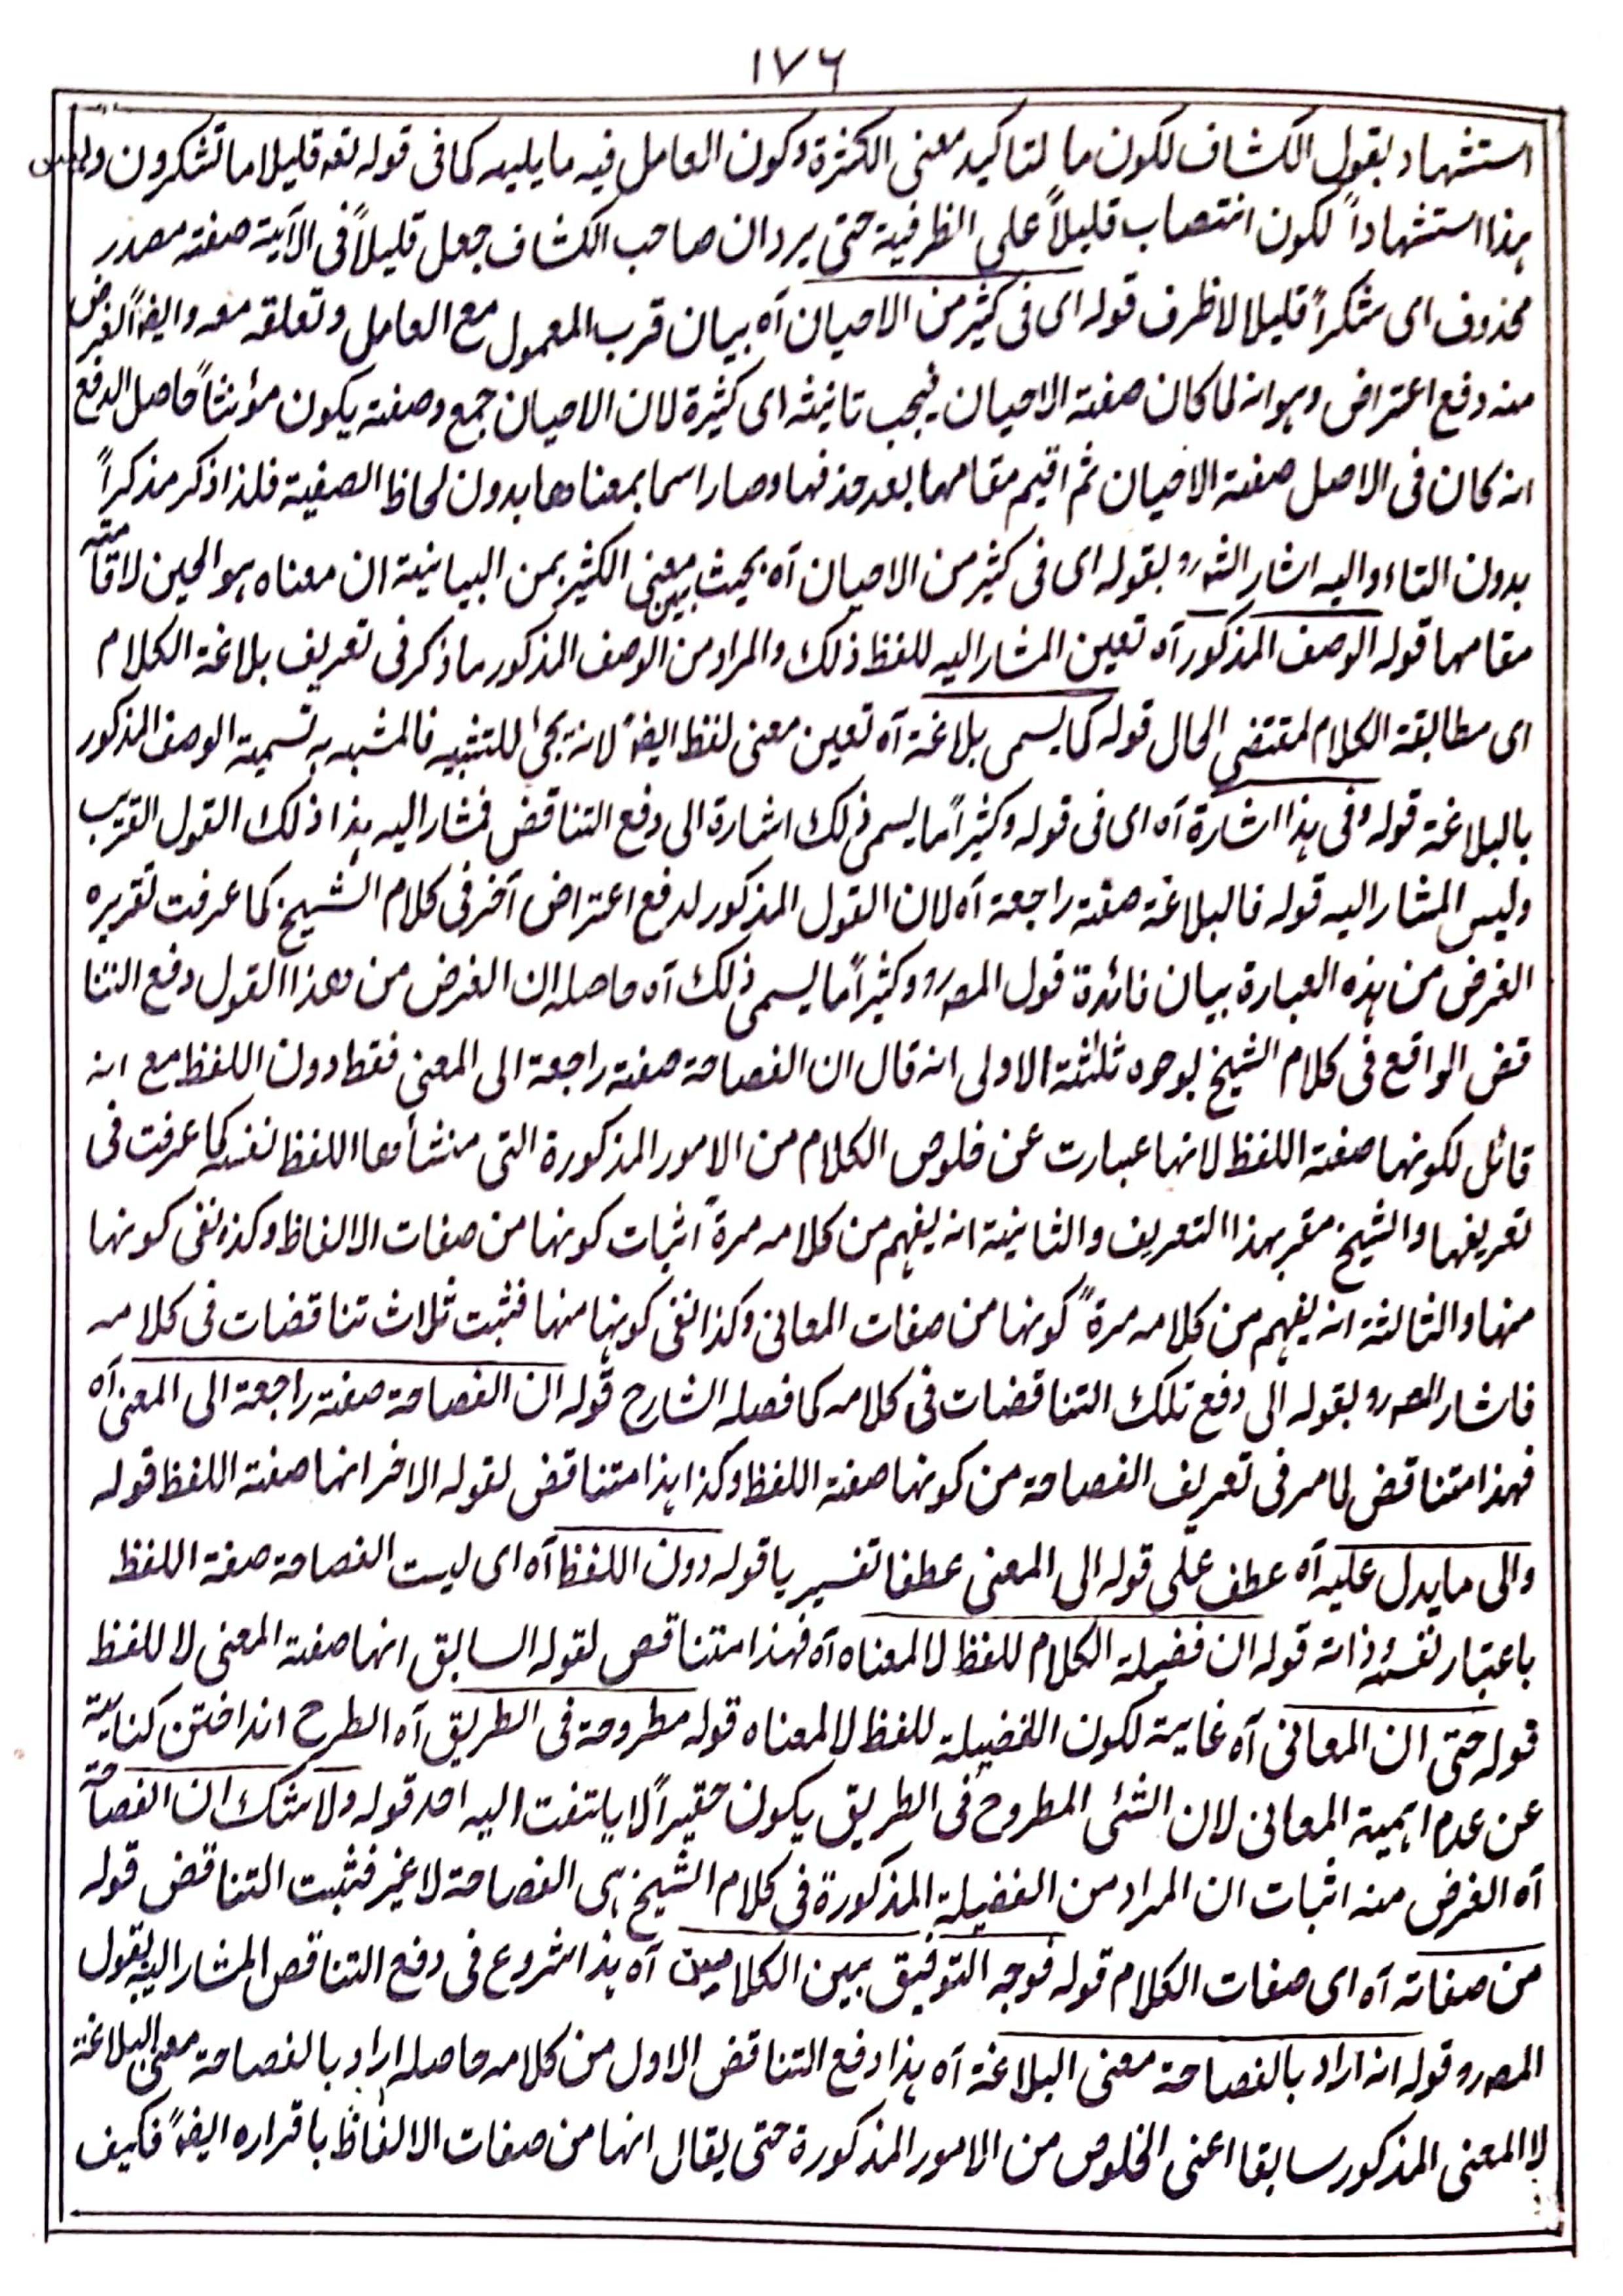 ١٧٦
استشهاد بقول الكشاف لكون ما لتاكيد معنى الكثرة وكون العامل فيه ما يليه كما فى قوله تعه قليلا ما تشكرون وليس
هذا استشهاداً لكون انتصاب قليلاً على الظرفية حتى يرد ان صاحب الكشاف جعل قليلاً فى الآية صفة مصدر
محذوف اى شكراً قليلا لا ظرف قوله اى فى كثير من الاحيان آه بيان قرب المعمول مع العامل وتعلقه معه وايضاً الغرض
منه دفع اعتراض وهو انه لما كان صفة الاحيان فيجب تانيثه اى كثيرة لان الاحيان جمع وصفته يكون مؤنثاً حاصل الدفع
انه كان فى الاصل صفة الاحيان ثم اقيم مقامها بعد حذفها وصار اسما بمعناها بدون لحاظ الصفية فلذا ذكر مذكراً
بدون التاء واليه اشار الشه رو بقوله اى فى كثير من الاحيان آه بحيث بين معنى الكثير بمن البيانية ان معناه هو الحين لاقامته
مقامها قوله الوصف المذكور آه تعين المشار اليه للفظ ذلك والمراد من الوصف المذكور ما ذكر فى تعريف بلاغة الكلام
اى مطابقة الكلام لمقتضى الحال قوله كما يسمى بلاغة آه تعين معنى لفظ ايضاً لانه يجئ للتشبيه فالمشبه به تسمية الوصف المذكور
بالبلاغة قوله وفى هذا اشارة آه اى فى قوله وكثيراً ما يسمى ذلك اشارة الى دفع التناقض فمشار اليه هذا ذلك القول القريب
وليس المشار اليه قوله فالبلاغة صفة راجعة آه لان القول المذكور لدفع اعتراض آخر فى كلام الشيخ كما عرفت تقريره
الغرض من هذه العبارة بيان فائدة قول المصه رو وكثيراً ما يسمى ذلك آه حاصله ان الغرض من هذا القول دفع التنا
قض الواقع فى كلام الشيخ بوجوه ثلثة الاولى انه قال ان الفصاحة صفة راجعة الى المعنى فقط دون اللفظ مع انه
قائل لكونها صفة اللفظ لانها عبارت عن خلوص الكلام من الامور المذكورة التى منشأها اللفظ نفسه كما عرفت فى
تعريفها والشيخ مقر بهذا التعريف والثانية انه يفهم من كلامه مرة اثبات كونها من صفات الالفاظ وكذا نفى كونها
منها والثالثة انه يفهم من كلامه مرة كونها من صفات المعانى وكذا نفى كونها منها فثبت ثلاث تناقضات فى كلامه
فاشار المصه رو بقوله الى دفع تلك التناقضات فى كلامه كما فصله الشارح قوله ان الفصاحة صفة راجعة الى المعنى آه
فهذا متناقض لما مر فى تعريف الفصاحة من كونها صفة اللفظ وكذا هذا متناقض لقوله الاخر انها صفة اللفظ قوله
والى ما يدل عليه آه عطف على قوله الى المعنى عطفا تفسيريا قوله دون اللفظ آه اى ليست الفصاحة صفة اللفظ
باعتبار نفسه وذاته قوله ان فضيلة الكلام للفظ لا لمعناه آه فهذا متناقض لقوله السابق انها صفة المعنى لا للفظ
قوله حتى ان المعانى آه غاية لكون الفضيلة للفظ لا لمعناه قوله مطروحة فى الطريق آه الطرح انداختن كناية
عن عدم اهمية المعانى لان الشئ المطروح فى الطريق يكون حقيراً لا يلتفت اليه احد قوله ولا شك ان الفصاحة
آه الغرض منه اثبات ان المراد من الفضيلة المذكورة فى كلام الشيخ هى الفصاحة لا غير فثبت التناقض قوله
من صفاته آه اى صفات الكلام قوله فوجه التوفيق بين الكلامين آه هذا شروع فى دفع التناقض المشار اليه بقول
المصه رو قوله انه اراد بالفصاحة معنى البلاغة آه هذا دفع التناقض الاول من كلامه حاصله اراد بالفصاحة معنى البلاغة
لا المعنى المذكور سابقا اعنى الخلوص من الامور المذكورة حتى يقال انها من صفات الالفاظ باقراره ايضاً فكيف